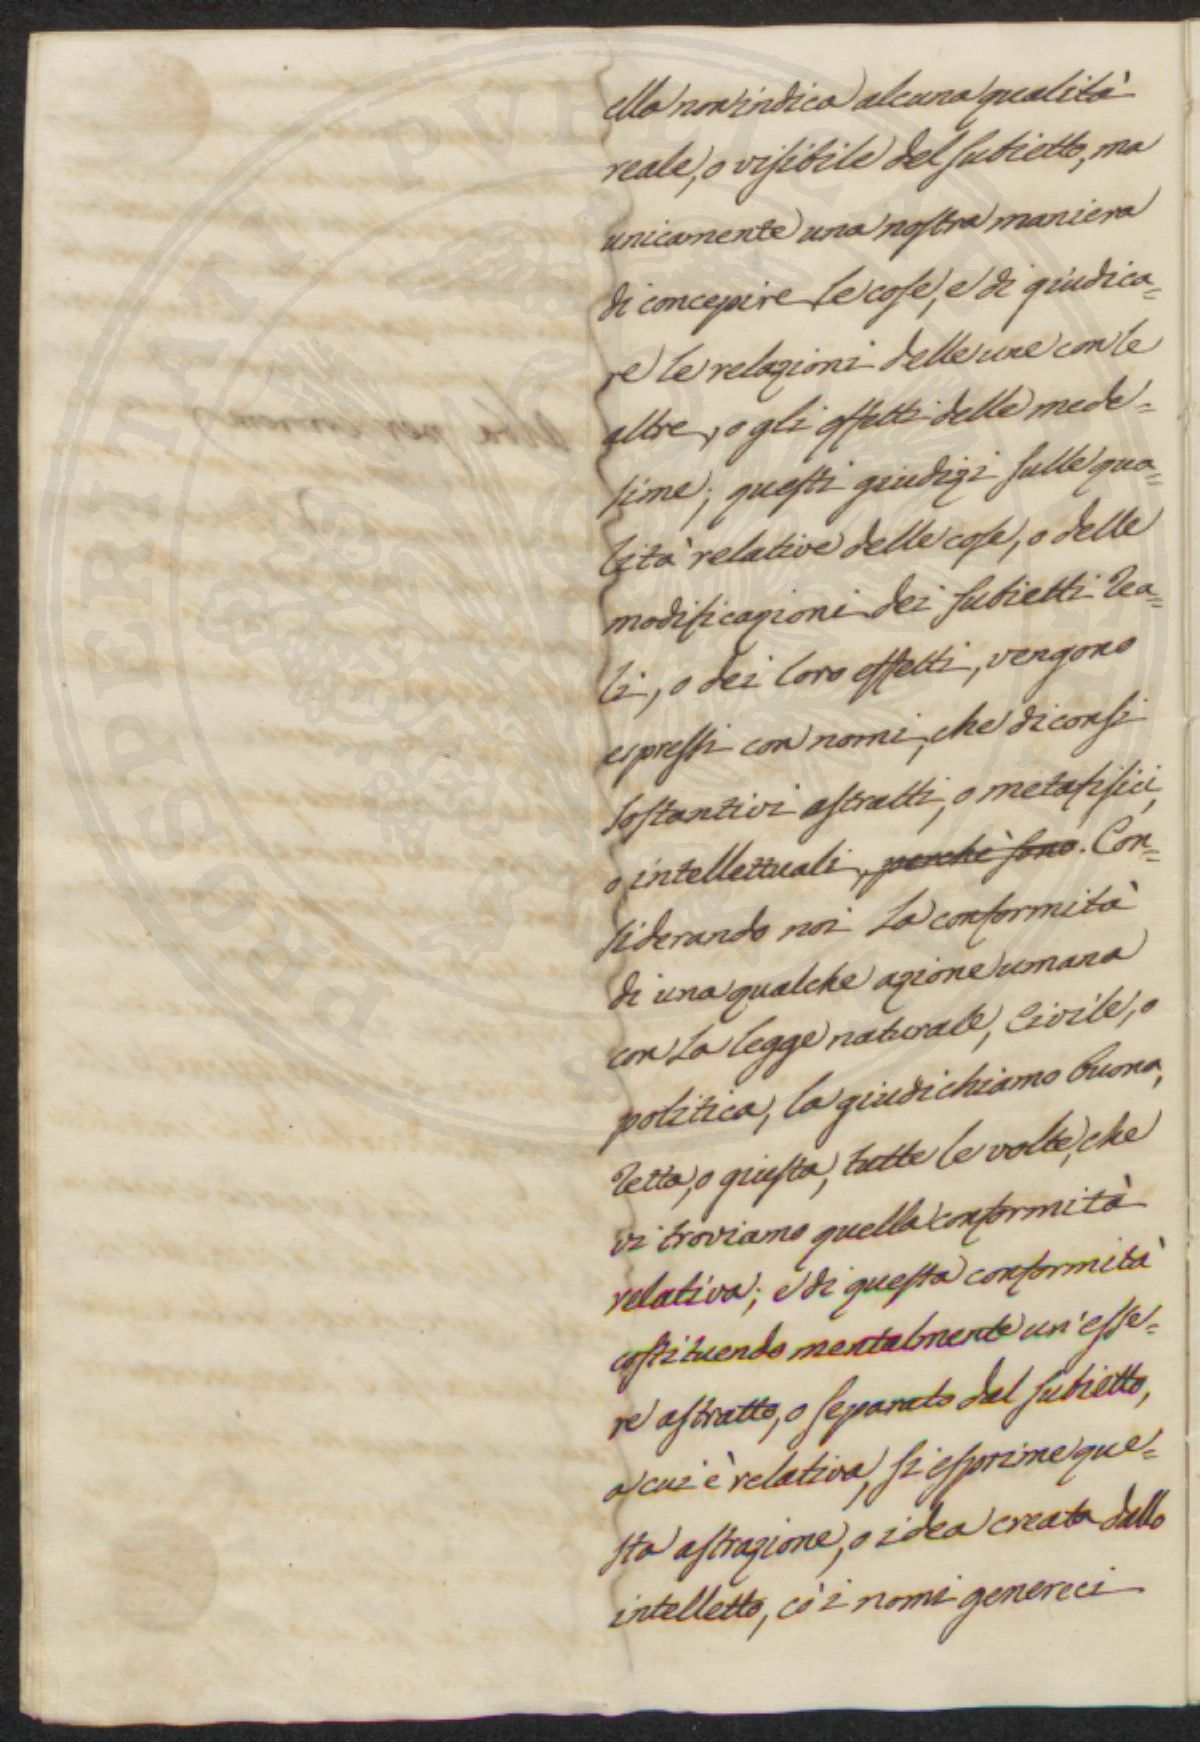 ella non indica alcuna qualità
reale, o visibile del subietto, ma
unicamente una nostra maniera
di concepire le cose, e di giudica=
re le relazioni delle une con le
altre, o gli effetti delle mede=
sime; questi giudizi sulle qua=
lità relative delle cose, o delle
modificazioni dei subietti rea=
li, o dei loro effetti, vengono
espressi con nomi, che diconsi
sostantivi astratti, o metafisici,
o intellettuali, perchè sono. Con=
siderando noi la conformità
di una qualche azione umana
con la legge naturale, civile, o
politica, la giudichiamo buona,
retta, o giusta, tutte le volte, che
vi troviamo quella conformità
relativa; e di questa conformità
costituendo mentalmente un'esse=
re astratto, o separato dal subietto,
a cui è relativa, si esprime que=
sta astrazione, o idea creata dallo
intelletto, co' i nomi generici
PROSPERITATI PUBLICAE